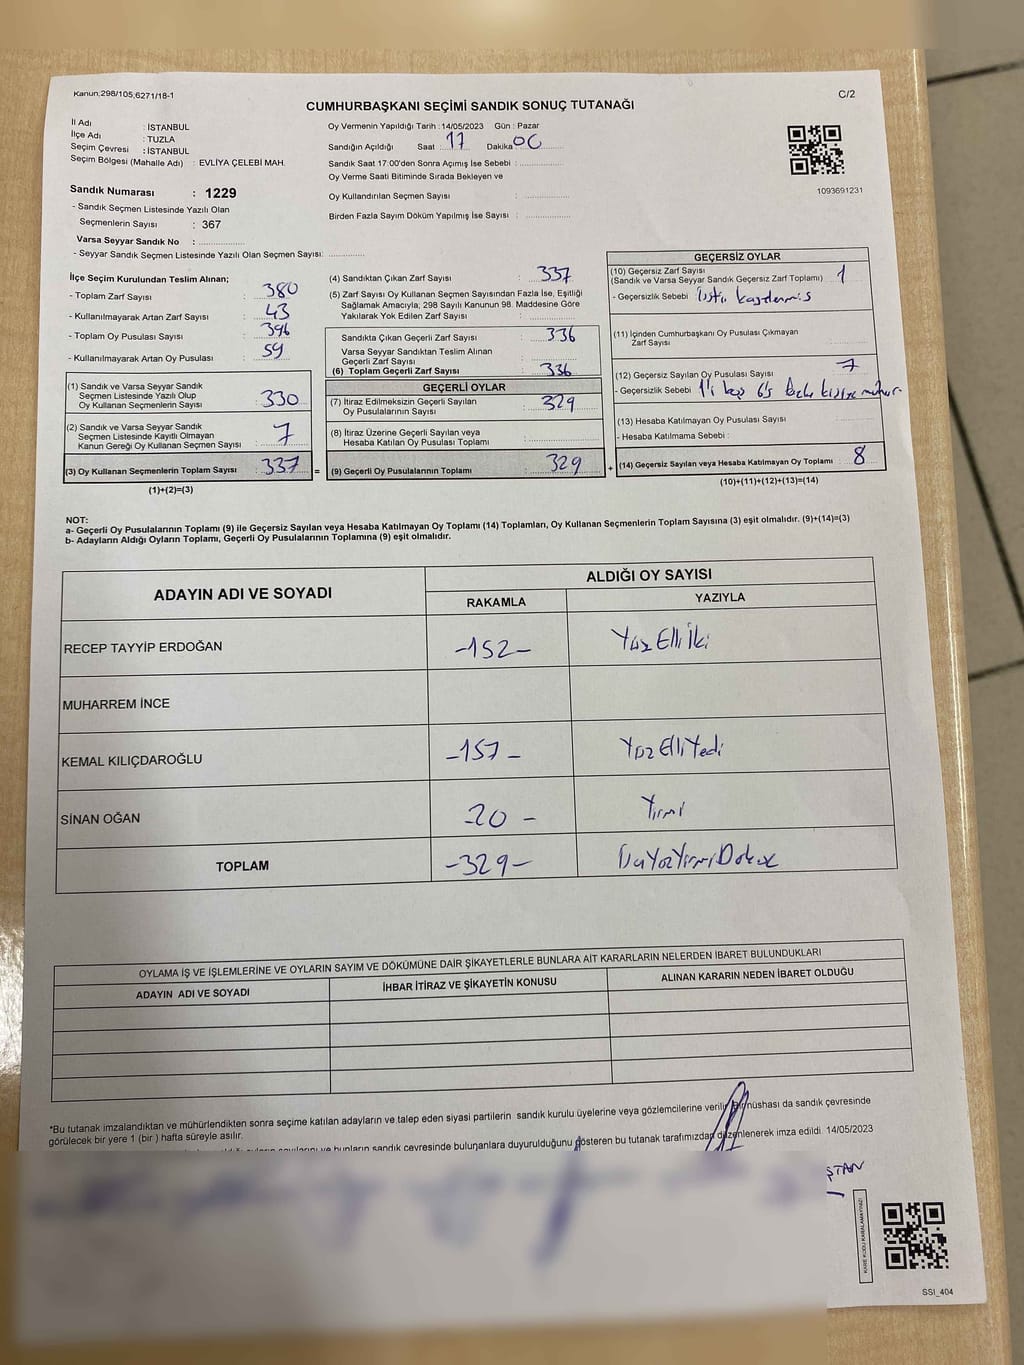 Kanun;298/105,6271/18-1
C/2
CUMHURBAŞKANI SEÇİMİ SANDIK SONUÇ TUTANAĞI
İl Adı : İSTANBUL
İlçe Adı : TUZLA
Seçim Çevresi : İSTANBUL
Seçim Bölgesi (Mahalle Adı) : EVLİYA ÇELEBİ MAH.
Sandık Numarası : 1229
- Sandık Seçmen Listesinde Yazılı Olan
Seçmenlerin Sayısı : 367
Varsa Seyyar Sandık No :
- Seyyar Sandık Seçmen Listesinde Yazılı Olan Seçmen Sayısı:
Oy Vermenin Yapıldığı Tarih :14/05/2023 Gün : Pazar
Sandığın Açıldığı Saat 17 Dakika 00
Sandık Saat 17:00'den Sonra Açımış İse Sebebi :
Oy Verme Saati Bitiminde Sırada Bekleyen ve
Oy Kullandırılan Seçmen Sayısı :
Birden Fazla Sayım Döküm Yapılmış İse Sayısı :
1093691231
İlçe Seçim Kurulundan Teslim Alınan;
- Toplam Zarf Sayısı : 380
- Kullanılmayarak Artan Zarf Sayısı : 43
- Toplam Oy Pusulası Sayısı : 396
- Kullanılmayarak Artan Oy Pusulası : 59
(1) Sandık ve Varsa Seyyar Sandık
Seçmen Listesinde Yazılı Olup
Oy Kullanan Seçmenlerin Sayısı : 330
(2) Sandık ve Varsa Seyyar Sandık
Seçmen Listesinde Kayıtlı Olmayan
Kanun Gereği Oy Kullanan Seçmen Sayısı : 7
(3) Oy Kullanan Seçmenlerin Toplam Sayısı : 337 =
(1)+(2)=(3)
(4) Sandıktan Çıkan Zarf Sayısı : 337
(5) Zarf Sayısı Oy Kullanan Seçmen Sayısından Fazla İse, Eşitliği
Sağlamak Amacıyla; 298 Sayılı Kanunun 98. Maddesine Göre
Yakılarak Yok Edilen Zarf Sayısı :
Sandıkta Çıkan Geçerli Zarf Sayısı : 336
Varsa Seyyar Sandıktan Teslim Alınan
Geçerli Zarf Sayısı :
(6) Toplam Geçerli Zarf Sayısı : 336
GEÇERLİ OYLAR
(7) İtiraz Edilmeksizin Geçerli Sayılan
Oy Pusulalarının Sayısı : 329
(8) İtiraz Üzerine Geçerli Sayılan veya
Hesaba Katılan Oy Pusulası Toplamı :
(9) Geçerli Oy Pusulalarının Toplamı : 329 +
GEÇERSİZ OYLAR
(10) Geçersiz Zarf Sayısı
(Sandık ve Varsa Seyyar Sandık Geçersiz Zarf Toplamı) : 1
- Geçersizlik Sebebi :
(11) İçinden Cumhurbaşkanı Oy Pusulası Çıkmayan
Zarf Sayısı :
(12) Geçersiz Sayılan Oy Pusulası Sayısı : 7
- Geçersizlik Sebebi : 1'i boş 6'sı
(13) Hesaba Katılmayan Oy Pusulası Sayısı :
- Hesaba Katılmama Sebebi :
(14) Geçersiz Sayılan veya Hesaba Katılmayan Oy Toplamı : 8
(10)+(11)+(12)+(13)=(14)
NOT:
a- Geçerli Oy Pusulalarının Toplamı (9) ile Geçersiz Sayılan veya Hesaba Katılmayan Oy Toplamı (14) Toplamları, Oy Kullanan Seçmenlerin Toplam Sayısına (3) eşit olmalıdır. (9)+(14)=(3)
b- Adayların Aldığı Oyların Toplamı, Geçerli Oy Pusulalarının Toplamına (9) eşit olmalıdır.
ADAYIN ADI VE SOYADI ALDIĞI OY SAYISI
RAKAMLA YAZIYLA
RECEP TAYYİP ERDOĞAN -152- Yüz Elli İki
MUHARREM İNCE
KEMAL KILIÇDAROĞLU -157- Yüz Elli Yedi
SİNAN OĞAN -20- Yirmi
TOPLAM -329- ÜçYüzYirmiDokuz
OYLAMA İŞ VE İŞLEMLERİNE VE OYLARIN SAYIM VE DÖKÜMÜNE DAİR ŞİKAYETLERLE BUNLARA AİT KARARLARIN NELERDEN İBARET BULUNDUKLARI
ADAYIN ADI VE SOYADI İHBAR İTİRAZ VE ŞİKAYETİN KONUSU ALINAN KARARIN NEDEN İBARET OLDUĞU
*Bu tutanak imzalandıktan ve mühürlendikten sonra seçime katılan adayların ve talep eden siyasi partilerin sandık kurulu üyelerine veya gözlemcilerine verilir. Bir nüshası da sandık çevresinde
görülecek bir yere 1 (bir ) hafta süreyle asılır.
bunların sandık çevresinde bulunanlara duyurulduğunu gösteren bu tutanak tarafımızdan düzenlenerek imza edildi. 14/05/2023
ŞTAN
KARE KODU KARALAMAYINIZ!
SSI_404